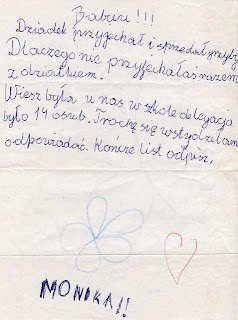 Babciu !!!
Dziadek przyjechał i sprzedał grzyby
Dlaczego nie przyjechałaś razem
z dziadkiem.
Wiesz była u nas w szkole delegacja
było 14 osub. Trochę się wstydziłam
odpowiadać. Kończe list odpisz.
MONIKA!!